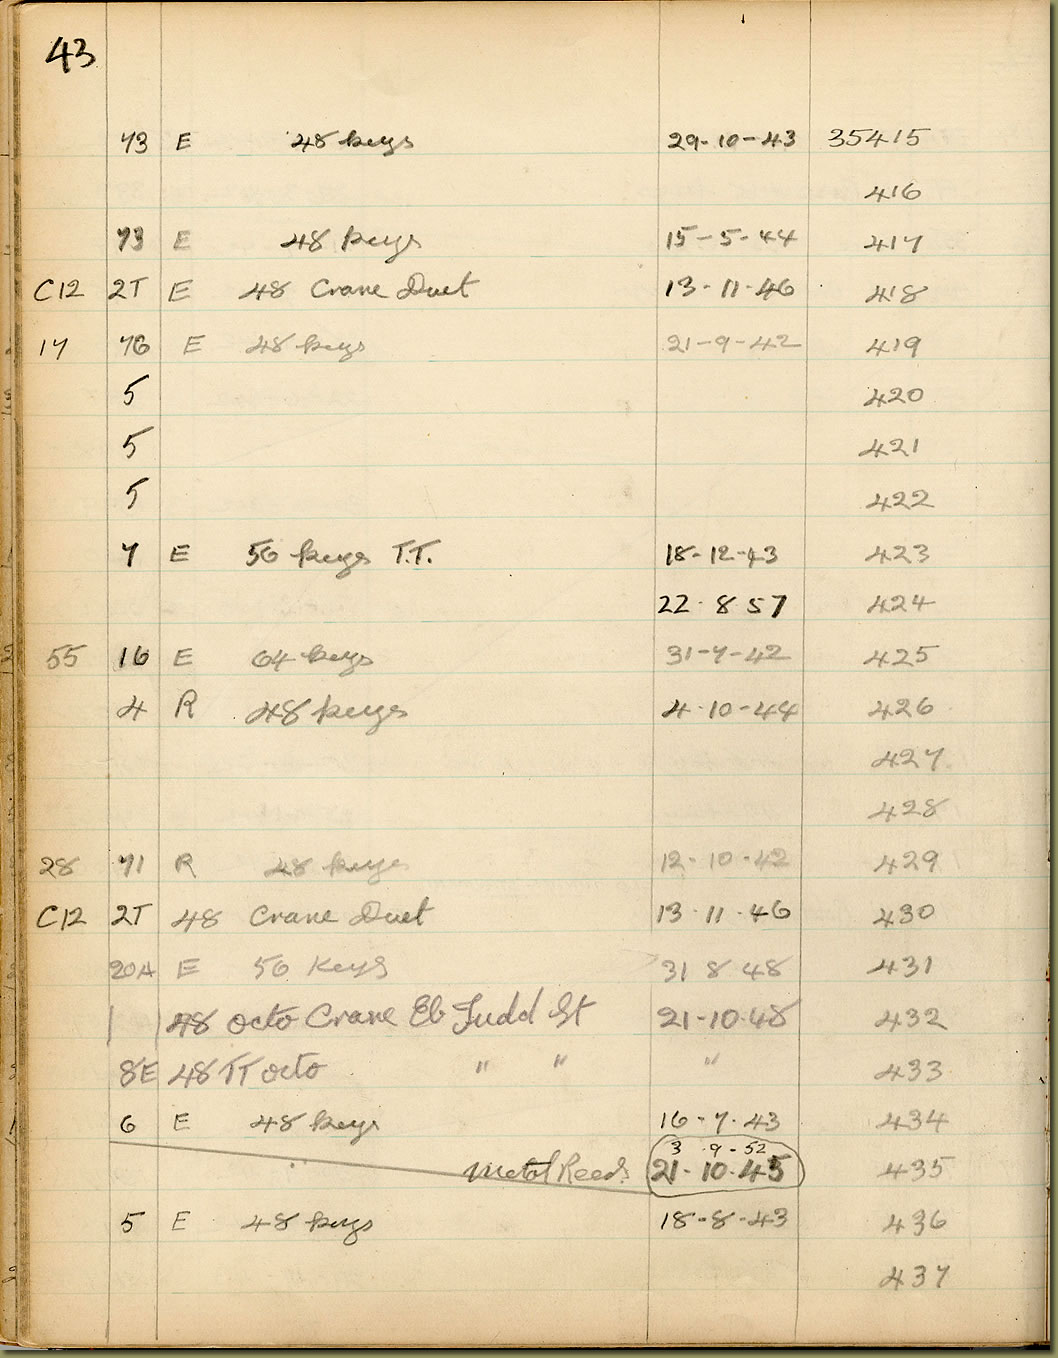 43
73 E 48 keys 29-10-43 35415
416
73 E 48 keys 15-5-44 417
C12 2T E 48 Crane Duet 13-11-46 418
17 76 E 48 keys 21-9-42 419
5 420
5 421
5 422
7 E 56 keys T.T. 18-12-43 423
22·8 57 424
55 16 E 64 keys 31-7-42 425
4 R 48 keys 4-10-44 426
427
428
28 71 R 48 keys 12-10-42 429
C12 2T 48 Crane Duet 13·11·46 430
20A E 56 Keys 31 8 48 431
1 48 octo Crane Eb Judd St 21-10-48 432
8E 48 TT octo " " " 433
6 E 48 keys 16-7-43 434
3·9-52
" Metal Reeds 21-10-45 435
5 E 48 keys 18-8-43 436
437